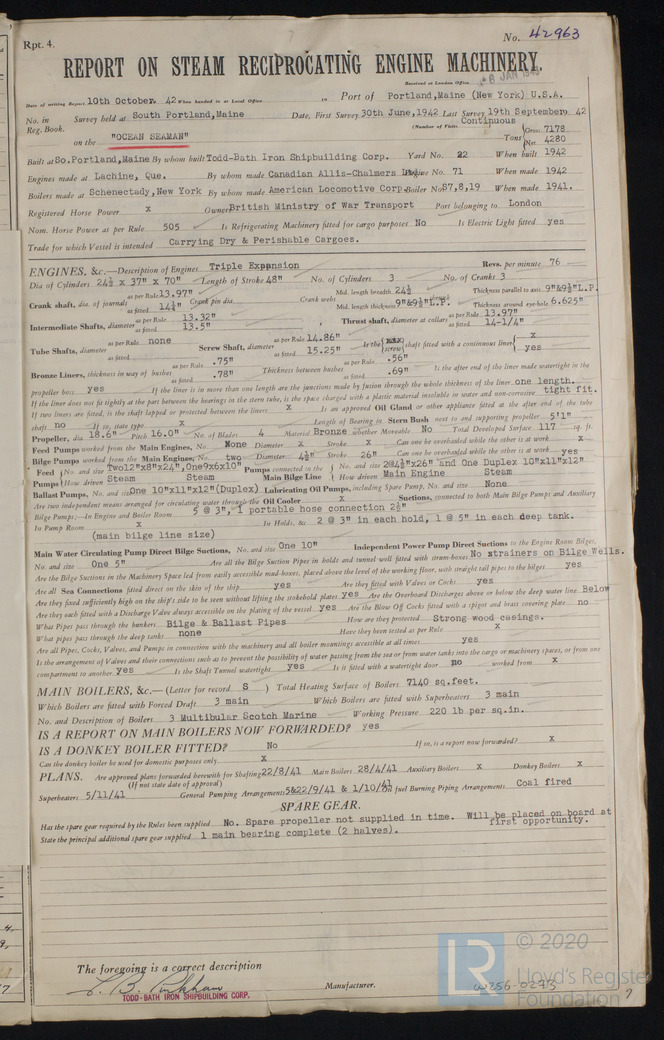 Rpt. 4.
No. 42963
REPORT ON STEAM RECIPROCATING ENGINE MACHINERY.
Received at London Office 8 JAN 194
Date of writing Report 10th October, 42 When handed in at Local Office 19 Port of Portland, Maine (New York) U.S.A.
No. in Reg. Book. Survey held at South Portland, Maine Date, First Survey 30th June, 1942 Last Survey 19th September 42
(Number of Visits Continuous
on the "OCEAN SEAMAN" Tons { Gross 7178
Net 4280
Built at So. Portland, Maine By whom built Todd-Bath Iron Shipbuilding Corp. Yard No. 22 When built 1942
Engines made at Lachine, Que. By whom made Canadian Allis-Chalmers Ltd. Engine No. 71 When made 1942
Boilers made at Schenectady, New York By whom made American Locomotive Corp. Boiler No. S7,8,19 When made 1941.
Registered Horse Power x Owners British Ministry of War Transport Port belonging to London
Nom. Horse Power as per Rule 505 Is Refrigerating Machinery fitted for cargo purposes No Is Electric Light fitted yes
Trade for which Vessel is intended Carrying Dry & Perishable Cargoes.
ENGINES, &c.—Description of Engines Triple Expansion Revs. per minute 76
Dia of Cylinders 24½ x 37" x 70" Length of Stroke 48" No. of Cylinders 3 No. of Cranks 3
Crank shaft, dia. of journals as per Rule 13.97" as fitted 14¼" Crank pin dia. Crank webs Mid. length breadth 24½ Mid. length thickness 9"&9½"L.P. Thickness parallel to axis 9"&9½"L.P. Thickness around eye-hole 6.625"
Intermediate Shafts, diameter as per Rule 13.32" as fitted 13.5" Thrust shaft, diameter at collars as per Rule 13.97" as fitted 14-1/4"
Tube Shafts, diameter as per Rule none as fitted Screw Shaft, diameter as per Rule 14.86" as fitted 15.25" Is the { tube screw } shaft fitted with a continuous liner { x yes
Bronze Liners, thickness in way of bushes as per Rule .75" as fitted .78" Thickness between bushes as per Rule .56" as fitted .69" Is the after end of the liner made watertight in the
propeller boss yes If the liner is in more than one length are the junctions made by fusion through the whole thickness of the liner one length.
If the liner does not fit tightly at the part between the bearings in the stern tube, is the space charged with a plastic material insoluble in water and non-corrosive tight fit.
If two liners are fitted, is the shaft lapped or protected between the liners x Is an approved Oil Gland or other appliance fitted at the after end of the tube
shaft no If so, state type x Length of Bearing in Stern Bush next to and supporting propeller 5'1"
Propeller, dia 18.6" Pitch 16.0" No. of Blades 4 Material Bronze whether Moveable No Total Developed Surface 117 sq. ft.
Feed Pumps worked from the Main Engines, No. None Diameter x Stroke x Can one be overhauled while the other is at work x
Bilge Pumps worked from the Main Engines, No. two Diameter 4½" Stroke 26" Can one be overhauled while the other is at work yes
Feed Pumps { No. and size Two12"x8"x24", One9x6x10" Pumps connected to the Main Bilge Line { No. and size 2@4½"x26" and One Duplex 10"x11"x12"
How driven Steam Steam How driven Main Engine Steam
Ballast Pumps, No. and size One 10"x11"x12"(Duplex) Lubricating Oil Pumps, including Spare Pump, No. and size None
Are two independent means arranged for circulating water through the Oil Cooler x Suctions, connected to both Main Bilge Pumps and Auxiliary
Bilge Pumps;—In Engine and Boiler Room 5 @ 3", 1 portable hose connection 2½"
In Pump Room x In Holds, &c. 2 @ 3" in each hold, 1 @ 5" in each deep tank.
(main bilge line size)
Main Water Circulating Pump Direct Bilge Suctions, No. and size One 10" Independent Power Pump Direct Suctions to the Engine Room Bilges,
No. and size One 5" Are all the Bilge Suction Pipes in holds and tunnel well fitted with strum-boxes No strainers on Bilge Wells.
Are the Bilge Suctions in the Machinery Space led from easily accessible mud-boxes, placed above the level of the working floor, with straight tail pipes to the bilges yes
Are all Sea Connections fitted direct on the skin of the ship yes Are they fitted with Valves or Cocks yes
Are they fixed sufficiently high on the ship's side to be seen without lifting the stokehold plates yes Are the Overboard Discharges above or below the deep water line Below
Are they each fitted with a Discharge Valve always accessible on the plating of the vessel yes Are the Blow Off Cocks fitted with a spigot and brass covering plate no
What Pipes pass through the bunkers Bilge & Ballast Pipes How are they protected Strong wood casings.
What pipes pass through the deep tanks none Have they been tested as per Rule x
Are all Pipes, Cocks, Valves, and Pumps in connection with the machinery and all boiler mountings accessible at all times yes
Is the arrangement of Valves and their connections such as to prevent the possibility of water passing from the sea or from water tanks into the cargo or machinery spaces, or from one
compartment to another yes Is the Shaft Tunnel watertight yes Is it fitted with a watertight door no worked from x
MAIN BOILERS, &c.—(Letter for record S ) Total Heating Surface of Boilers 7140 sq.feet.
Which Boilers are fitted with Forced Draft 3 main Which Boilers are fitted with Superheaters 3 main
No. and Description of Boilers 3 Multibular Scotch Marine Working Pressure 220 lb per sq.in.
IS A REPORT ON MAIN BOILERS NOW FORWARDED? yes
IS A DONKEY BOILER FITTED? No If so, is a report now forwarded? x
Can the donkey boiler be used for domestic purposes only x
PLANS. Are approved plans forwarded herewith for Shafting 22/8/41 Main Boilers 28/4/41 Auxiliary Boilers x Donkey Boilers x
(If not state date of approval)
Superheaters 5/11/41 General Pumping Arrangements 5&22/9/41 & 1/10/41 Oil fuel Burning Piping Arrangements Coal fired
SPARE GEAR.
Has the spare gear required by the Rules been supplied No. Spare propeller not supplied in time. Will be placed on board at
first opportunity.
State the principal additional spare gear supplied 1 main bearing complete (2 halves).
The foregoing is a correct description
TODD-BATH IRON SHIPBUILDING CORP. Manufacturer.
W256-0273
© 2020
LR
Lloyd's Register
Foundation